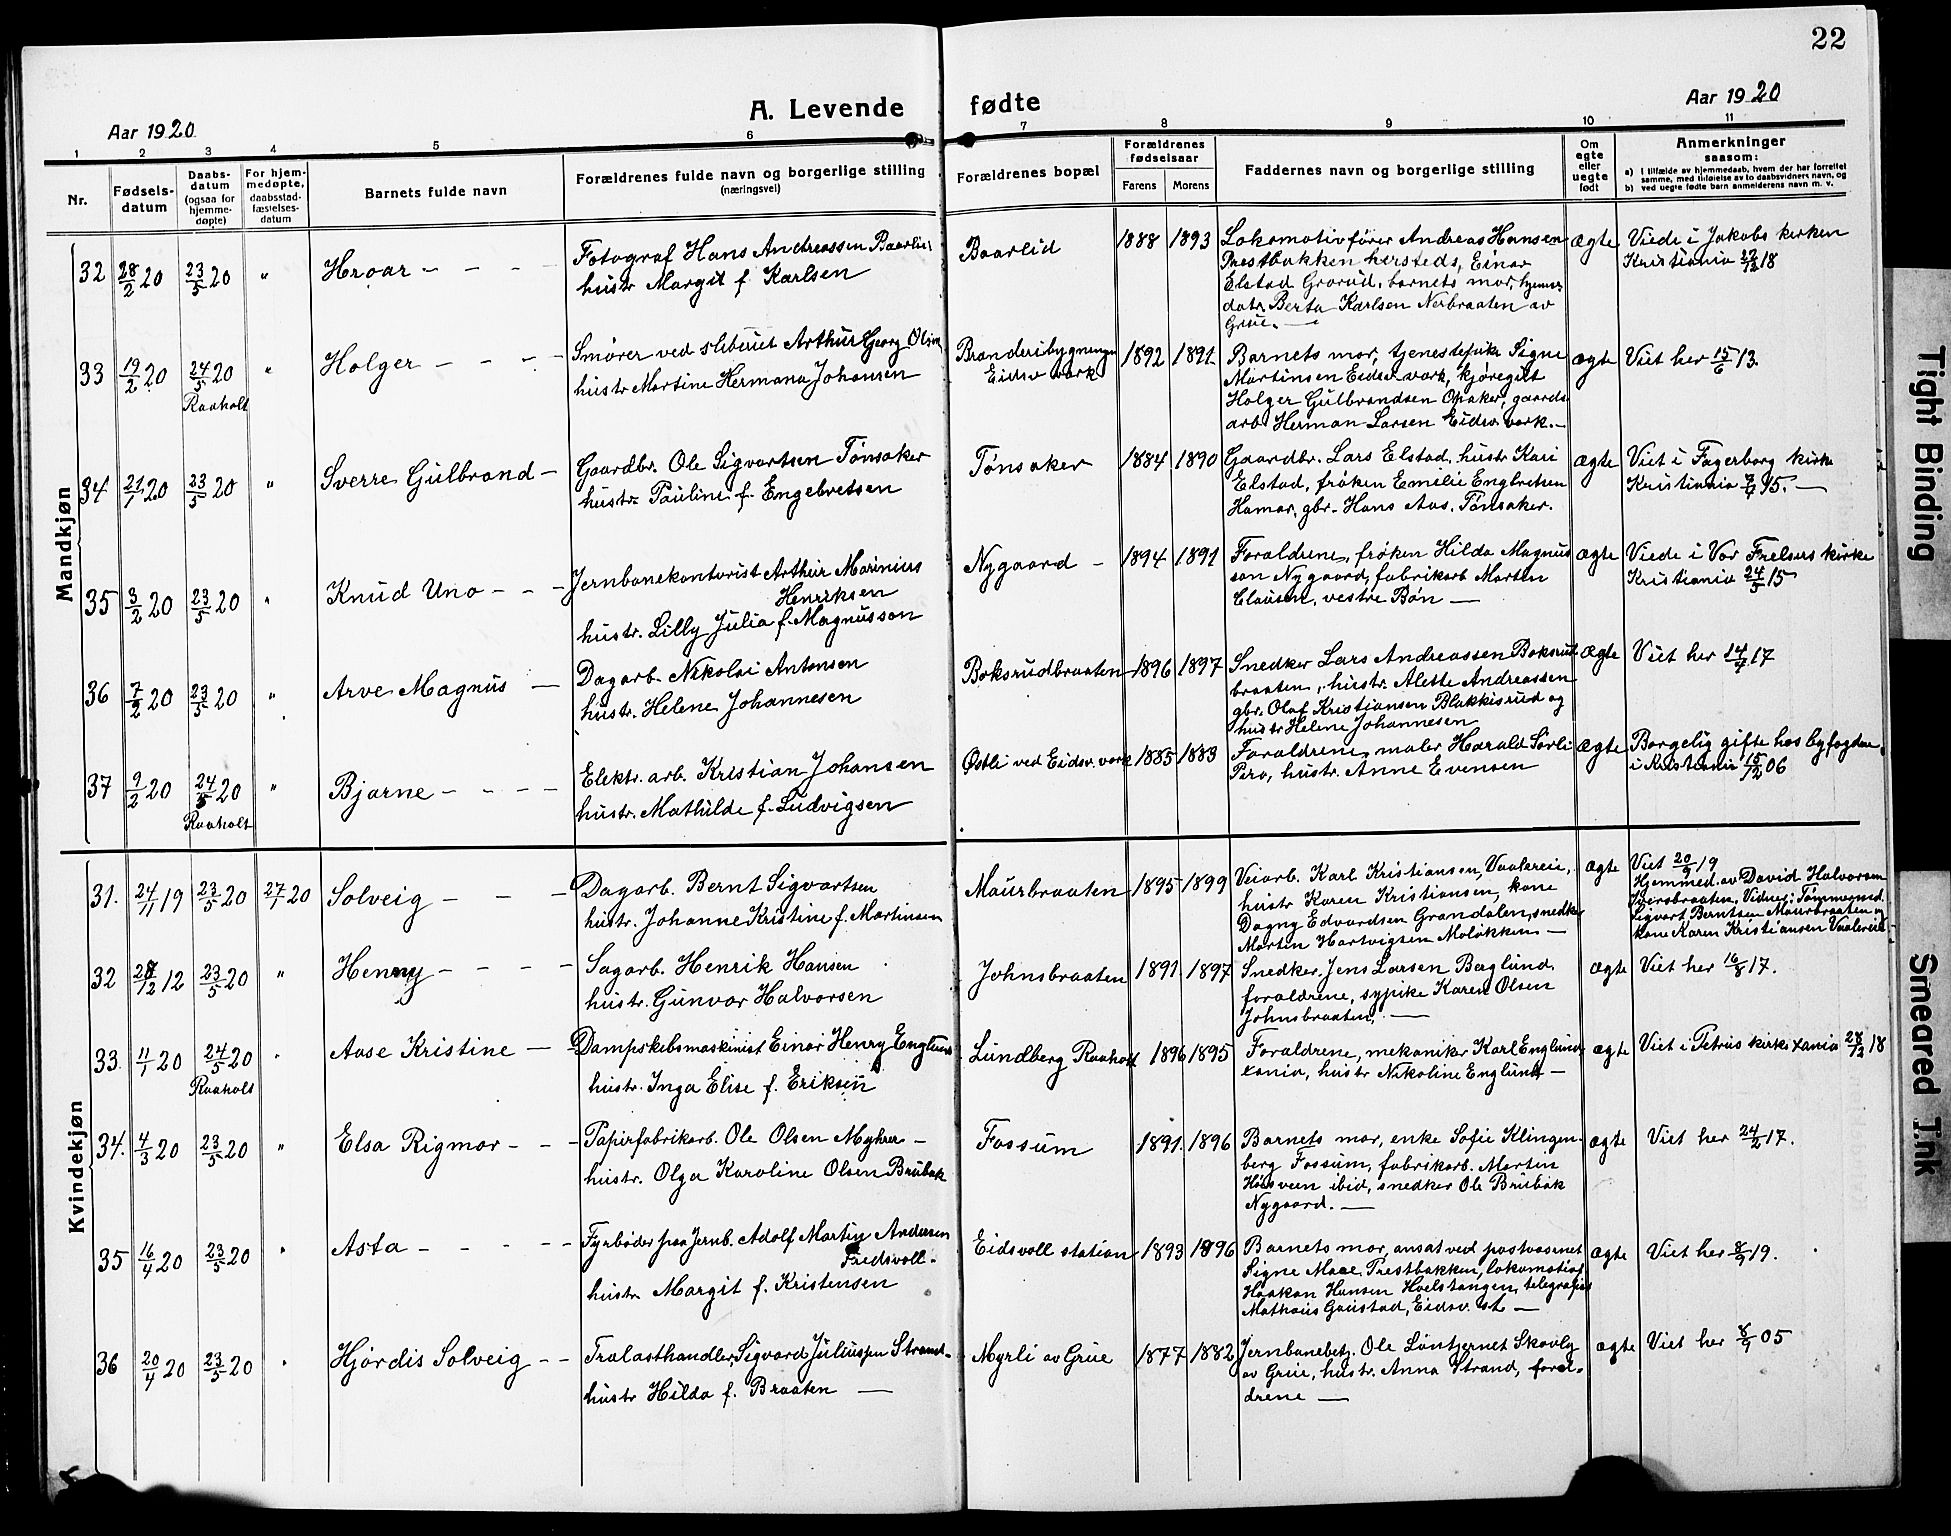 22
A. Levende fødte
Aar 1920
Aar 1920
1 2 3 4 5 6 7 8 9 10 11
Nr.
Fødsels-
datum
Daabs-
datum
(ogsaa for
hjemme-
døpte)
For hjem-
medøpte,
daabsstad-
fæstelses-
datum
Barnets fulde navn
Forældrenes fulde navn og borgerlige stilling
(næringsvei)
Forældrenes bopæl
Forældrenes
fødselsaar
Farens Morens
Faddernes navn og borgerlige stilling
Om
egte
eller
uegte
født
Anmerkninger
saasom:
a) I tilfælde av hjemmedaab, hvem der har forrettet
samme, med tilføielse av to daabsvidners navn, og
b) ved uegte fødte barn anmelderens navn m. v.
Mandkjøn
32 28/2 20 23/5 20 " Hroar - - - -
Fotograf Hans Andreassen Baarlid
hustr. Margit f. Karlsen
Baarlid 1888 1893
Lokomotivfører Andreas Hansen
Prestbakken hersteds, Einar
Elstad Grorud, barnets mor, hjemv.
datr. Berta Karlsen Nerbraaten av
Grue. —
ægte
Viede i Jakobs kirken
Kristiania 22/12 18
33 19/2 20 24/5 20 " Holger - - - -
Raaholt
Smører ved sliberiet Arthur Georg Olsen
hustr. Martine Hermana Johansen
Brænderibygningen
Eidsv. værk
1892 1891
Barnets mor, tjenestepike Signe
Martinsen Eidsv. værk, kjøregut
Holger Gulbrandsen Opaker, gaards
arb. Herman Larsen Eidsv. værk. -
ægte
Viet her 15/6 13.
34 21/1 20 23/5 20 " Sverre Gulbrand -
Gaardbr. Ole Sigvartsen Tønsaker
hustr. Pauline f. Engebretsen
Tønsaker 1884 1890
Gaardbr. Lars Elstad, hustr. Kari
Elstad, frøken Emilie Engbretsen
Hamar, gbr. Hans Aas, Tønsaker.
ægte
Viet i Fagerborg kirke
Kristiania 15. —
35 3/2 20 23/5 20 " Knud Uno - - -
Jernbanekontorist Arthur Marinius
Henriksen
hustr. Lilly Julia f. Magnusson
Nygaard - 1894 1891
Forældrene, frøken Hilda Magnus
son Nygaard, fabrikarb. Morten
Clausen, vestre Bøn —
ægte
Viede i Vor Frelsers kirke
Kristiania 24/5 15
36 7/2 20 23/5 20 " Arve Magnus -
Dagarb. Nikolai Antonsen
hustr. Helene Johannesen
Boksrudbraaten 1896 1897
Snedker Lars Andreassen Boksrud
braaten, hustr. Alette Andreassen
gbr. Olaf Kristiansen Blakkisrud og
hustr Helene Johannesen
ægte
Viet her 14/7 17
37 9/2 20 24/5 20 " Bjarne - - - -
Raaholt
Elektr. arb. Kristian Johansen
hustr. Mathilde f. Ludvigsen
Østli ved Eidsv. værk 1885 1883
Forældrene, maler Harald Sørli
Piro, hustr. Anne Evensen
ægte
Borgelig gifte hos byfogden
i Kristiania 15/12 06
Kvindekjøn
31. 24/11 19 23/5 20 27/1 20 Solveig - - -
Dagarb. Bernt Sigvartsen
hustr. Johanne Kristine f. Martinsen
Maurbraaten 1895 1899
Veiarb. Karl Kristiansen, Vaalereie,
hustr Karen Kristiansen, kone
Dagny Edvardsen Grandalen, snedker
Morten Hartvigsen Moløkken —
ægte
Viet 20/9 19
Hjemmed. av David Halvorsen
Iversbraaten, Vidner: Tømmermd.
Sigvart Berntsen Maurbraaten og
kone Karen Kristiansen Vaalereie
32 12 23/5 20 " Henny - - - -
Sagarb. Henrik Hansen
hustr. Gunvor Halvorsen
Johnsbraaten 1891 1897
Snedker Jens Larsen Berglund,
forældrene, sypike Karen Olsen
Johnsbraaten. —
ægte
Viet her 16/8 17.
33. 11/1 20 24/5 20 " Aase Kristine -
Raaholt
Dampskibsmaskinist Einar Henry Englund
hustr. Inga Elise f. Eriksen
Lundberg Raaholt 1896 1895
Forældrene, mekaniker Karl Englund
Xania, hustr Nikoline Englund —
ægte
Viet i Petrus kirke Xania 28/12 18
34. 4/3 20 23/5 20 " Elsa Rigmor - - -
Papirfabrikarb. Ole Olsen Myhrer -
hustr. Olga Karoline Olsen Brubak
Fossum 1891. 1896
Barnets mor, enke Sofie Klingen-
berg Fossum, fabrikarb. Morten
Haasveen ibid, snedker Ole Brubak
Nygaard. —
ægte
Viet her 24/2 17.
35 16/4 20 23/5 20 " Asta - - - -
Fyrbøder paa Jernb. Adolf Martin Andersen
Fredsvoll -
hustr. Margit f. Kristensen
Eidsvoll station 1893 1896
Barnets mor, ansat ved postvæsenet
Signe Moee Prestbakken, lokomotivf.
Haakon Hansen Hoelstangen, telegrafist
Mathæus Gaustad, Eidsv. st. —
ægte
Viet her 8/9 19.
36 20/4 20 23/5 20 " Hjørdis Solveig - -
Trælasthandler Sigvard Juliussen Strand -
hustr Hilda f. Braaten —
Myrli av Grue 1877 1882
Jernbanebetj. Ole Løntjernet Skovly
av Grue, hustr. Anna Strand, foræl-
drene —
ægte
Viet her 05
Tight Binding
Smeared Ink